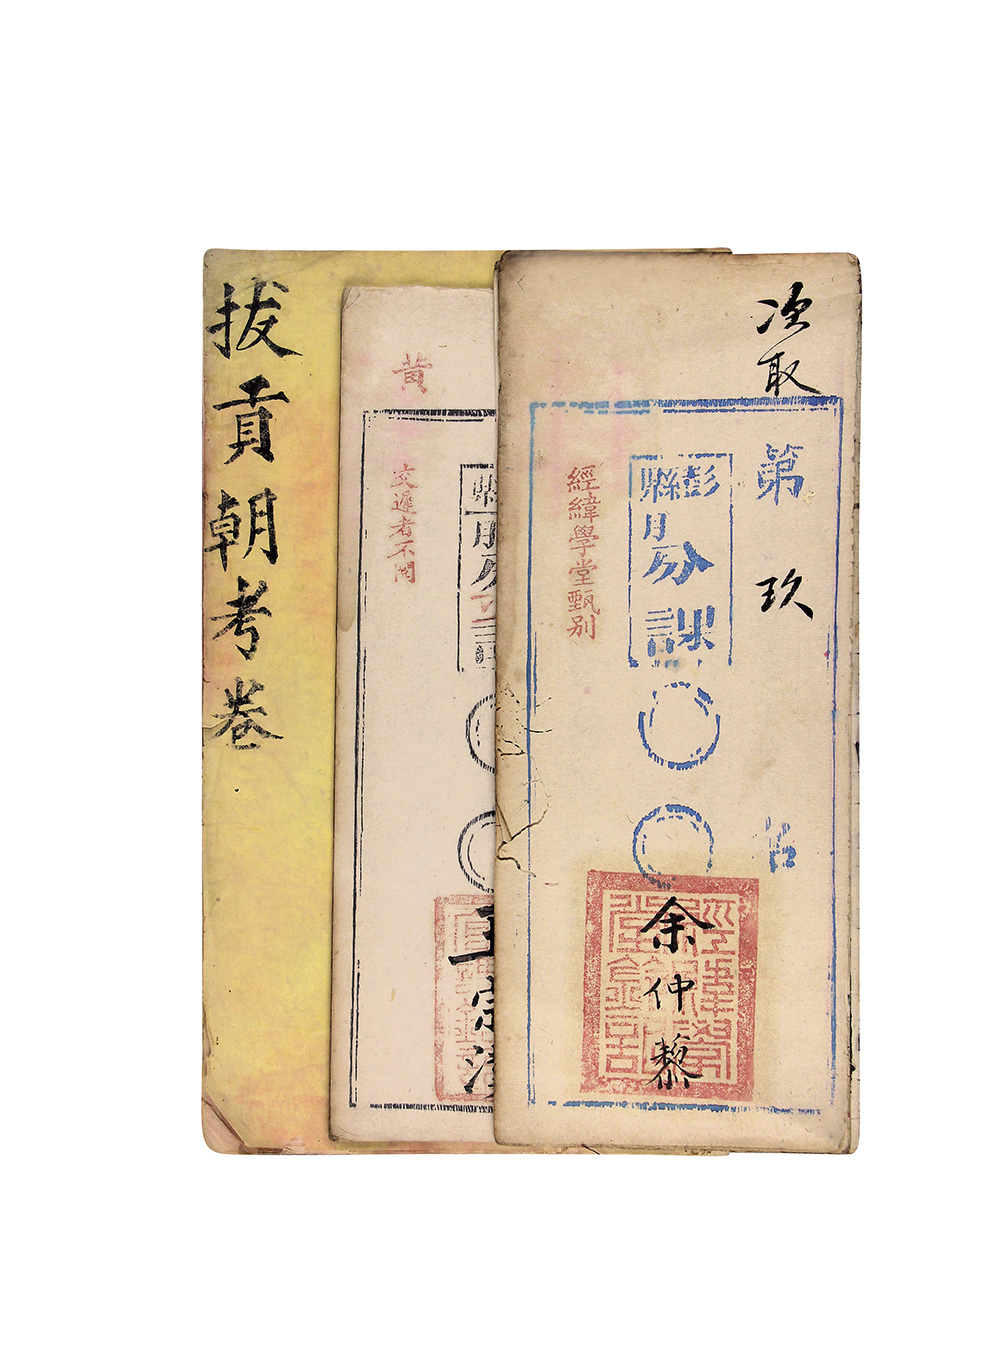 次取
第玖名
彭縣
月份課
經緯學堂甄別
余仲藜
黄
交遲者不閱
縣
月份
課
王宗
拔貢朝考卷